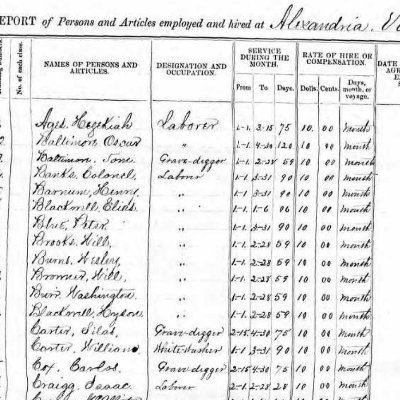 REPORT of Persons and Articles employed and hired at Alexandria, Va
No. of each class. NAMES OF PERSONS AND ARTICLES. DESIGNATION AND OCCUPATION. SERVICE DURING THE MONTH. From To Days. RATE OF HIRE OR COMPENSATION. Dolls. Cents. Days, month, or voyage. DATE
Ages. Hezekiah Laborer 1-1. 3-15 75 10. 00 Month
Baltimore, Oscar " 1-1. 4-30 120 10 00 Month
Baltimore, Tom Grave-digger 1-1. 2-28 59 10 00 Month
Banks, Colonel, Laborer 1-1 3-31 90 10 00 Month
Barnum, Henry, " 1-1 3-31 90 10 00 Month
Blackwell, Elias, " 1-1 1-6 06 10 00 Month
Blue, Peter " 1-1 3-31 90 10 00 Month
Brooks, Will, " 1-1 2-28 59 10 00 Month
Burns, Wesley, " 1-1 2-28 59 10 00 Month
Browner, Will, " 1-1 2-28 59 10 00 Month
Burr, Washington, " 1-1 2-28 59 10 00 Month
Blackwell, Hyson, " 1-1 2-28 59 10 00 Month
Carter, Silas, Grave-digger 2-15 4-30 75 10 00 Month
Carter, William, White washer 1-1 3-31 90 10 00 Month
Cox, Carlos, Grave-digger 2-15 4-30 75 10 00 Month
Craigg, Isaac, Laborer 1-1 2-28 28 10 00 Month